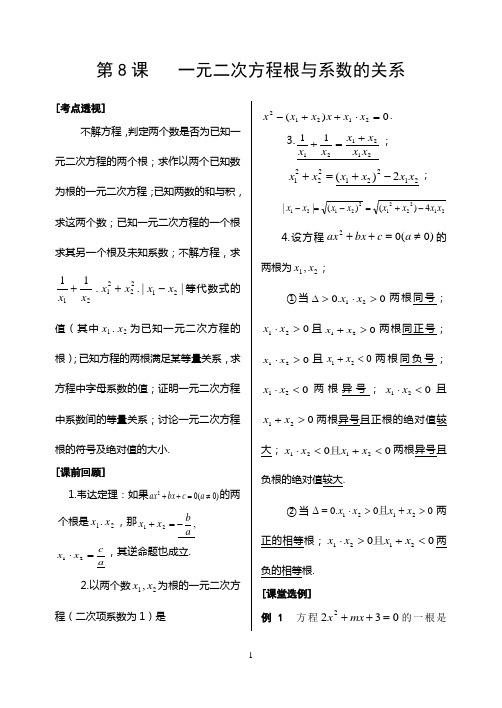 第8课 一元二次方程根与系数的关系
[考点透视]
不解方程，判定两个数是否为已知一
元二次方程的两个根；求作以两个已知数
为根的一元二次方程；已知两数的和与积，
求这两个数；已知一元二次方程的一个根
求其另一个根及未知系数；不解方程，求
1/x₁ + 1/x₂ . x₁² + x₂² . | x₁ − x₂ | 等代数式的
值（其中 x₁ . x₂ 为已知一元二次方程的
根）；已知方程的两根满足某等量关系，求
方程中字母系数的值；证明一元二次方程
中系数间的等量关系；讨论一元二次方程
根的符号及绝对值的大小.
[课前回顾]
1.韦达定理：如果ax² + + = 0(a ≠ 0)的两
个根是 x₁ · x₂ ，那 x₁ + x₂ = − b/a ,
x₁ · x₂ = c/a ，其逆命题也成立.
2.以两个数 x₁ , x₂ 为根的一元二次方
程（二次项系数为1）是
x² − (x₁ + x₂)x + x₁ · x₂ = 0 .
3. 1/x₁ + 1/x₂ = (x₁ + x₂)/(x₁x₂) ；
x₁² + x₂² = (x₁ + x₂)² − 2x₁x₂ ；
| x₁ − x₂ |= √(x₁ − x₂)² = √(x₁ + x₂)² − 4x₁x₂
4.设方程 ax² + bx + c = 0(a ≠ 0) 的
两根为 x₁ , x₂ ；
①当 Δ > 0. x₁ · x₂ > 0 两根同号；
x₁ · x₂ > 0 且 x₁ + x₂ > 0 两根同正号；
x₁ · x₂ > 0 且 x₁ + x₂ < 0 两根同负号；
x₁ · x₂ < 0 两根异号； x₁ · x₂ < 0 且
x₁ + x₂ > 0 两根异号且正根的绝对值较
大； x₁ · x₂ < 0且x₁ + x₂ < 0 两根异号且
负根的绝对值较大.
②当 Δ = 0. x₁ · x₂ > 0且x₁ + x₂ > 0 两
正的相等根； x₁ · x₂ > 0且x₁ + x₂ < 0 两
负的相等根.
[课堂选例]
例 1 方程 2x² + mx + 3 = 0 的一根是
1